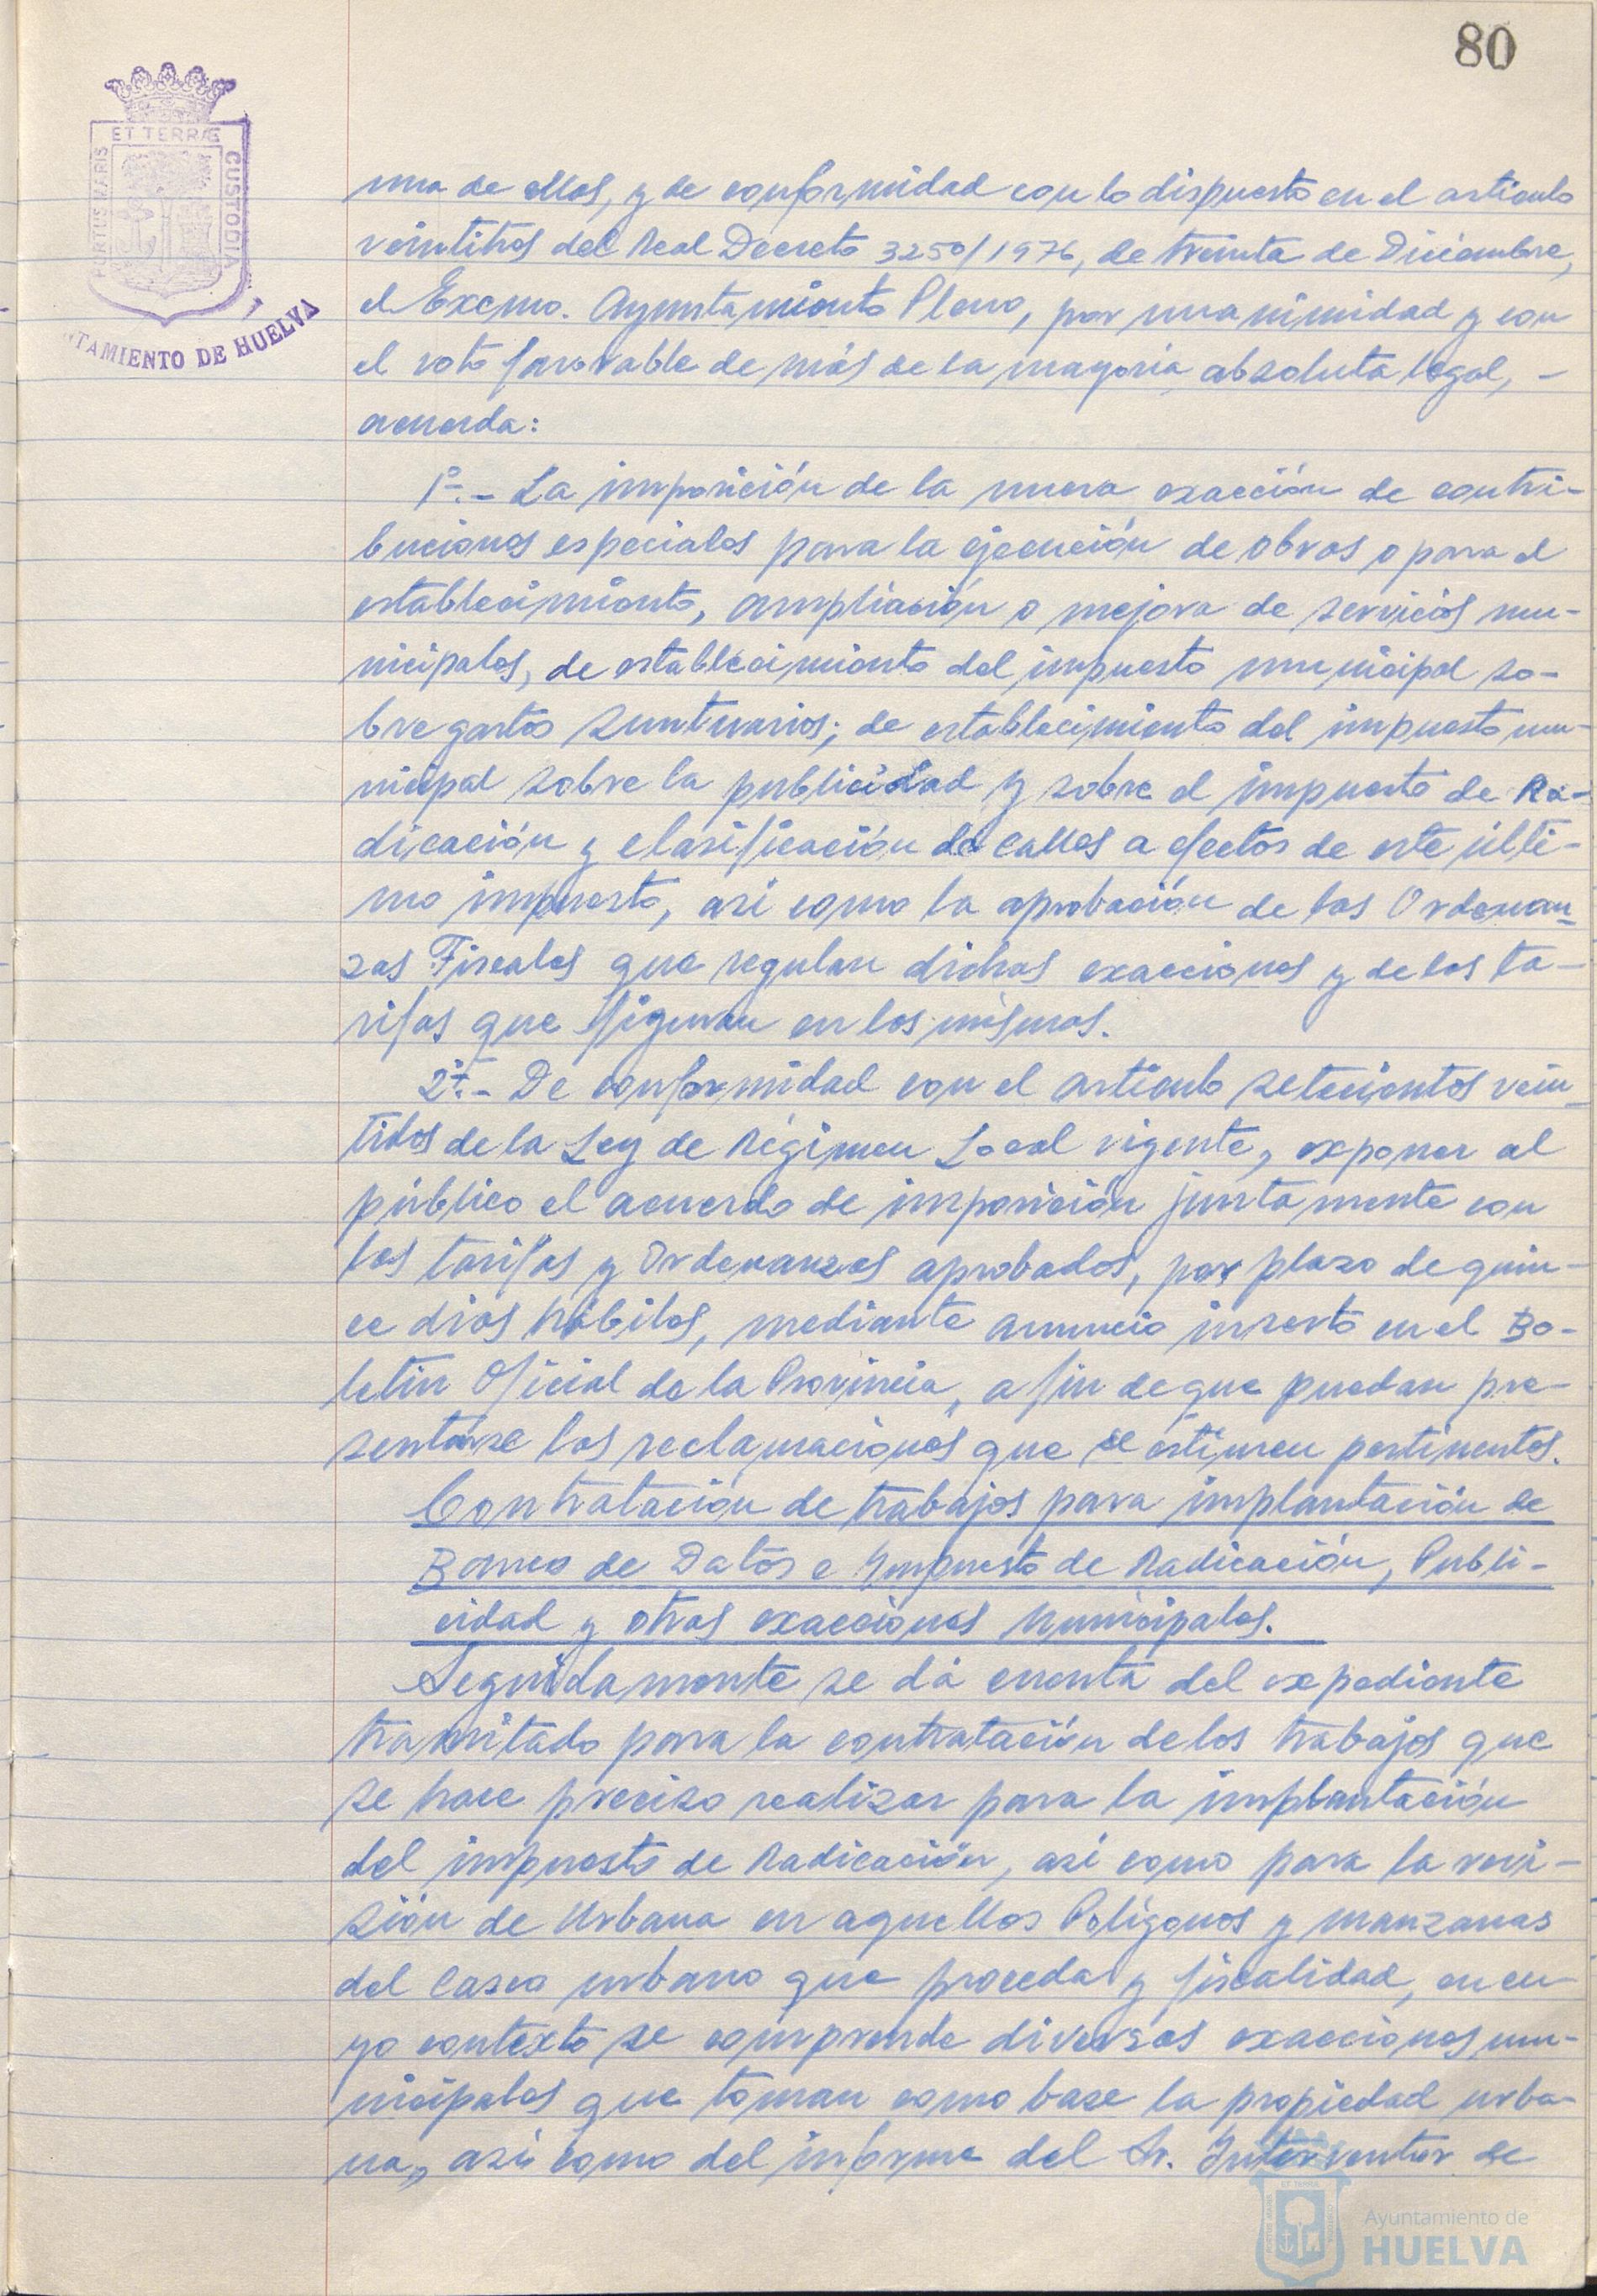 80
ET TERRÆ
PORTUS MARIS
CUSTODIA
NTAMIENTO DE HUELVA
una de ellas, y de conformidad con lo dispuesto en el artículo
veintitres del Real Decreto 3250/1976, de treinta de Diciembre,
el Excmo. Ayuntamiento Pleno, por unanimidad y con
el voto favorable de más de la mayoría absoluta legal, -
acuerda:
1º.- La imposición de la nueva exacción de contri-
buciones especiales para la ejecución de obras o para el
establecimiento, ampliación o mejora de servicios mu-
nicipales, de establecimiento del impuesto municipal so-
bre gastos suntuarios; de establecimiento del impuesto mu-
nicipal sobre la publicidad y sobre el impuesto de Ra-
dicación y clasificación de calles a efectos de este últi-
mo impuesto, así como la aprobación de las Ordenan-
zas Fiscales que regulan dichas exacciones y de las ta-
rifas que figuran en los mismos.
2º.- De conformidad con el artículo setecientos vein-
tidos de la Ley de Régimen Local vigente, exponer al
público el acuerdo de imposición juntamente con
las tarifas y Ordenanzas aprobadas, por plazo de quin-
ce días hábiles, mediante anuncio inserto en el Bo-
letín Oficial de la Provincia, a fin de que puedan pre-
sentarse las reclamaciones que se estimen pertinentes.
Contratación de trabajos para implantación de
Banco de Datos e Impuesto de Radicación, Publi-
cidad y otras exacciones Municipales.
Seguidamente se dá cuenta del expediente
tramitado para la contratación de los trabajos que
se hace preciso realizar para la implantación
del impuesto de Radicación, así como para la revi-
sión de Urbana en aquellos Polígonos y manzanas
del Casco urbano que proceda y fiscalidad, en cu-
yo contexto se comprende diversas exacciones mu-
nicipales que toman como base la propiedad urba-
na, así como del informe del Sr. Interventor de
Ayuntamiento de
HUELVA